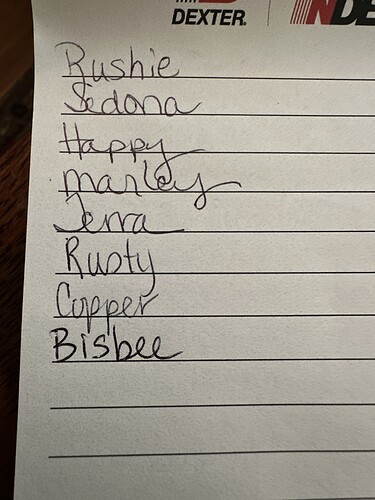 DEXTER
Rushie
Sedona
Happy
Marley
Jerra
Rusty
Copper
Bisbee